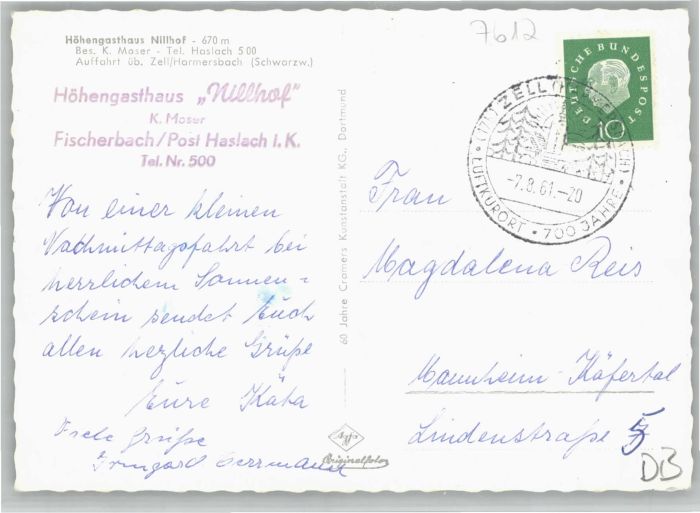 Höhengasthaus Nillhof - 670 m
Bes. K. Moser - Tel. Haslach 5 00
Auffahrt üb. Zell/Harmersbach (Schwarzw.)
Höhengasthaus „Nillhof"
K. Moser
Fischerbach/Post Haslach i. K.
Tel. Nr. 500
Von einer kleinen
Nachmittagsfahrt bei
herrlichem Sonnen-
schein sendet Euch
allen herzliche Grüße
Eure Käta
Viele Grüße
Irmgard Herrmann
60 Jahre Cramers Kunstanstalt KG., Dortmund
Agfa
Originalfoto
7612
DEUTSCHE BUNDESPOST
10
ZELL
-7.8.61.-20
LUFTKURORT • 700 JAHRE
Frau
Magdalena Reis
Mannheim-Käfertal
Lindenstraße
DB